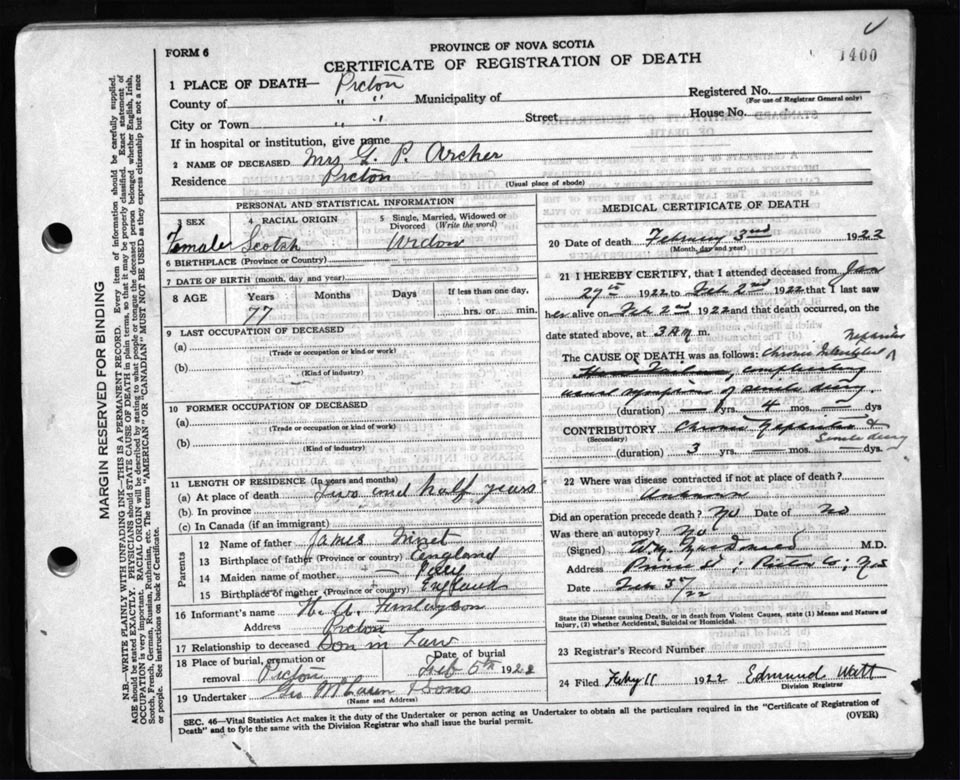 1400
FORM 6
PROVINCE OF NOVA SCOTIA
CERTIFICATE OF REGISTRATION OF DEATH
1 PLACE OF DEATH— Pictou
Registered No.
(For use of Registrar General only)
County of " " Municipality of
City or Town " " Street House No.
If in hospital or institution, give name
2 NAME OF DECEASED Mrs G. P. Archer
Residence Pictou
(Usual place of abode)
PERSONAL AND STATISTICAL INFORMATION
3 SEX
Female
4 RACIAL ORIGIN
Scotch
5 Single, Married, Widowed or Divorced (Write the word)
Widow
6 BIRTHPLACE (Province or Country)
7 DATE OF BIRTH (month, day and year)
8 AGE Years Months Days If less than one day,
77 hrs. or min.
9 LAST OCCUPATION OF DECEASED
(a)
(Trade or occupation or kind or work)
(b)
(Kind of industry)
10 FORMER OCCUPATION OF DECEASED
(a)
(Trade or occupation or kind of work)
(b)
(Kind of industry)
11 LENGTH OF RESIDENCE (In years and months)
(a) At place of death Two and half years
(b) In province
(c) In Canada (if an immigrant)
Parents
12 Name of father James
13 Birthplace of father (Province or country) England
14 Maiden name of mother
15 Birthplace of mother (Province or country) England
16 Informant's name H. A. Finlayson
Address Pictou
17 Relationship to deceased Son in Law
18 Place of burial, cremation or removal Pictou
Date of burial
Feb 5th 1922
19 Undertaker Geo McLaren & Sons
(Name and Address)
MEDICAL CERTIFICATE OF DEATH
20 Date of death February 3rd 1922
(Month, day and year)
21 I HEREBY CERTIFY, that I attended deceased from Jan
27th 1922 to Feb 2nd 1922 that I last saw
her alive on Feb 2nd 1922 and that death occurred, on the
date stated above, at 3 AM m.
The CAUSE OF DEATH was as follows: Chronic Interstitial Nephritis
complicating
symptoms of senile decay
(duration) — yrs. 4 mos. — dys
CONTRIBUTORY Chronic Nephritis &
(Secondary) Senile decay
(duration) 3 yrs. mos. dys.
22 Where was disease contracted if not at place of death?
Unknown
Did an operation precede death? No Date of No
Was there an autopsy? No
(Signed) W. MacDonald M.D.
Address Prince St; Pictou Co, N.S
Date Feb 3rd/22
State the Disease causing Death, or in death from Violent Causes, state (1) Means and Nature of
Injury, (2) whether Accidental, Suicidal or Homicidal.
23 Registrar's Record Number
24 Filed Feby 11 1922 Edmund Watt
Division Registrar
SEC. 46—Vital Statistics Act makes it the duty of the Undertaker or person acting as Undertaker to obtain all the particulars required in the "Certificate of Registration of
Death" and to fyle the same with the Division Registrar who shall issue the burial permit.
(OVER)
MARGIN RESERVED FOR BINDING
N.B.—WRITE PLAINLY WITH UNFADING INK—THIS IS A PERMANENT RECORD. Every item of information should be carefully supplied.
AGE should be stated EXACTLY. PHYSICIANS should STATE CAUSE OF DEATH in plain terms, so that it may be properly classified. Exact statement of
OCCUPATION is very important. RACIAL ORIGIN will be described by stating to what people or tongue the deceased person belonged whether English, Irish,
Scotch, French, German, Russian, Ruthenian, etc. The terms "AMERICAN" or "CANADIAN" MUST NOT BE USED as they express citizenship but not a race
or people. See instructions on back of Certificate.